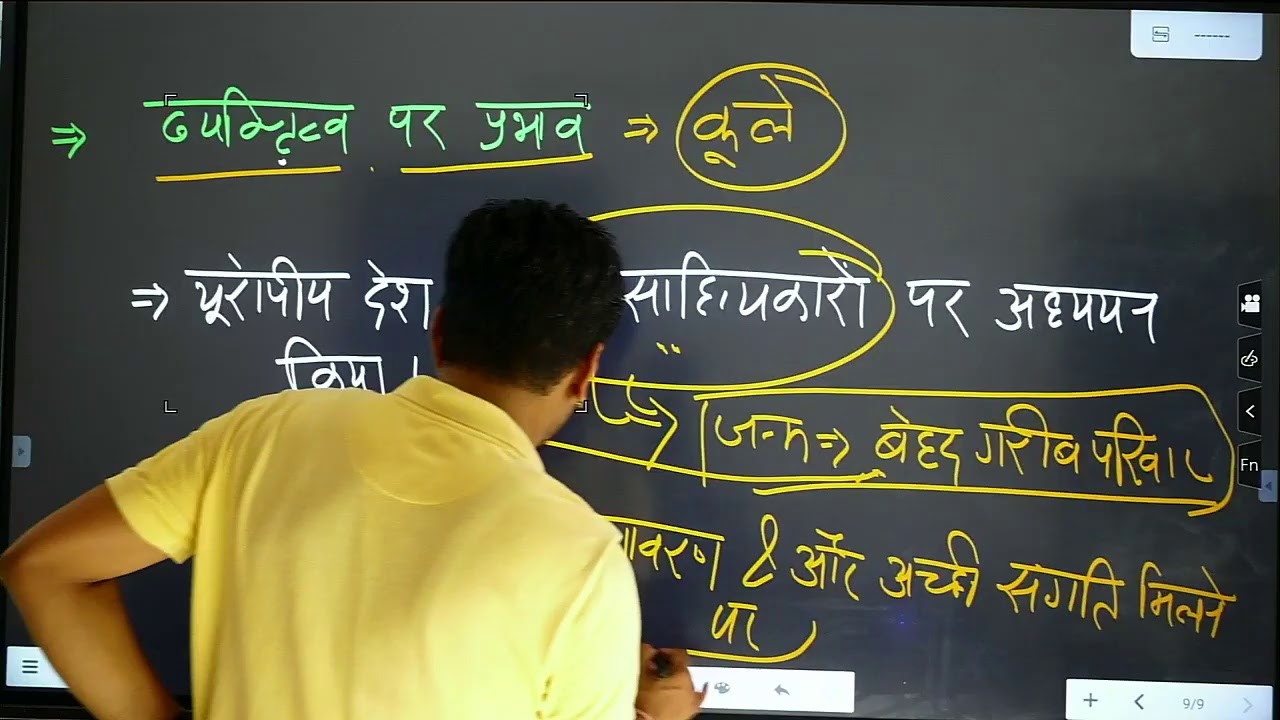 ⇒ व्यक्तित्व पर प्रभाव ⇒ कूले
⇒ यूरोपीय देश साहित्यकारों पर अध्ययन
किया ।
जन्म ⇒ बेहद गरीब परिवार
ावरण & और अच्छी संगति मिलने
पर
Fn
9/9